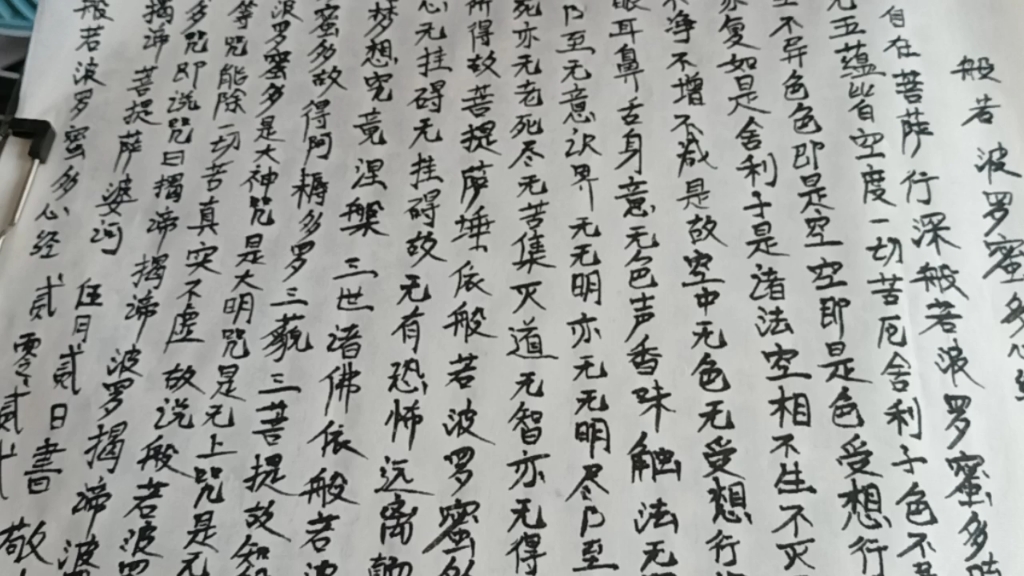 般若波罗蜜多心经
自在菩萨行深般若波罗蜜多时
五蕴皆空度一切苦厄舍利子色不
不异色色即是空空即是色受想行
亦复如是舍利子是诸法空相不生不灭
不净不增不减是故空中无色无受想行
眼耳鼻舌身意无色声香味触法无
至无意识界无无明亦无无明尽乃至
死亦无老死尽无苦集灭道无智亦无得
所得故菩提萨埵依般若波罗蜜多
无挂碍无挂碍故无有恐怖远离颠
梦想究竟涅槃三世诸佛依般若波
蜜多故得阿耨多罗三藐三菩提故知
波罗蜜多是大神咒是大明咒是无上咒是无
等咒能除一切苦真实不虚故说般若波
多咒即说咒曰揭谛揭谛波罗揭谛波
揭谛菩提萨婆诃
般若波罗蜜多心经
伍月贰日書
贰零贰
敬